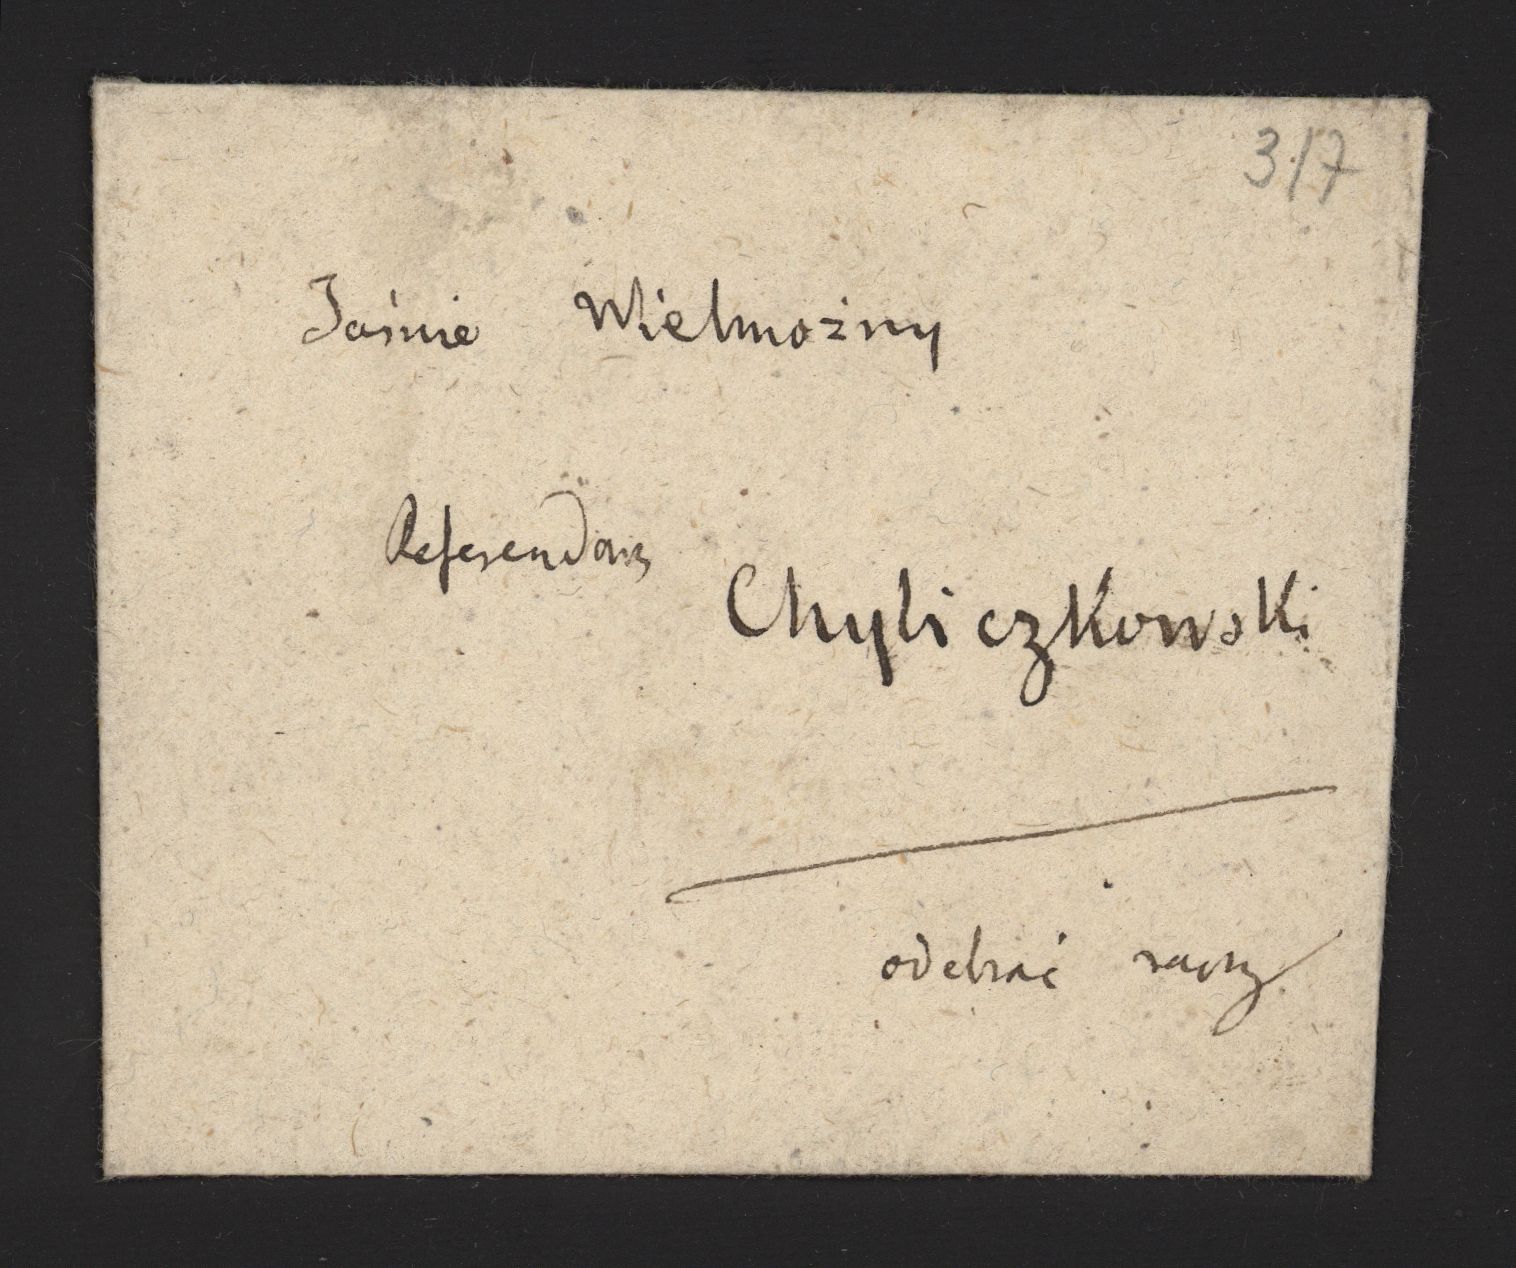 317
Jaśnie Wielmożny
Referendarz
Chyliczkowski
odebrać raczy